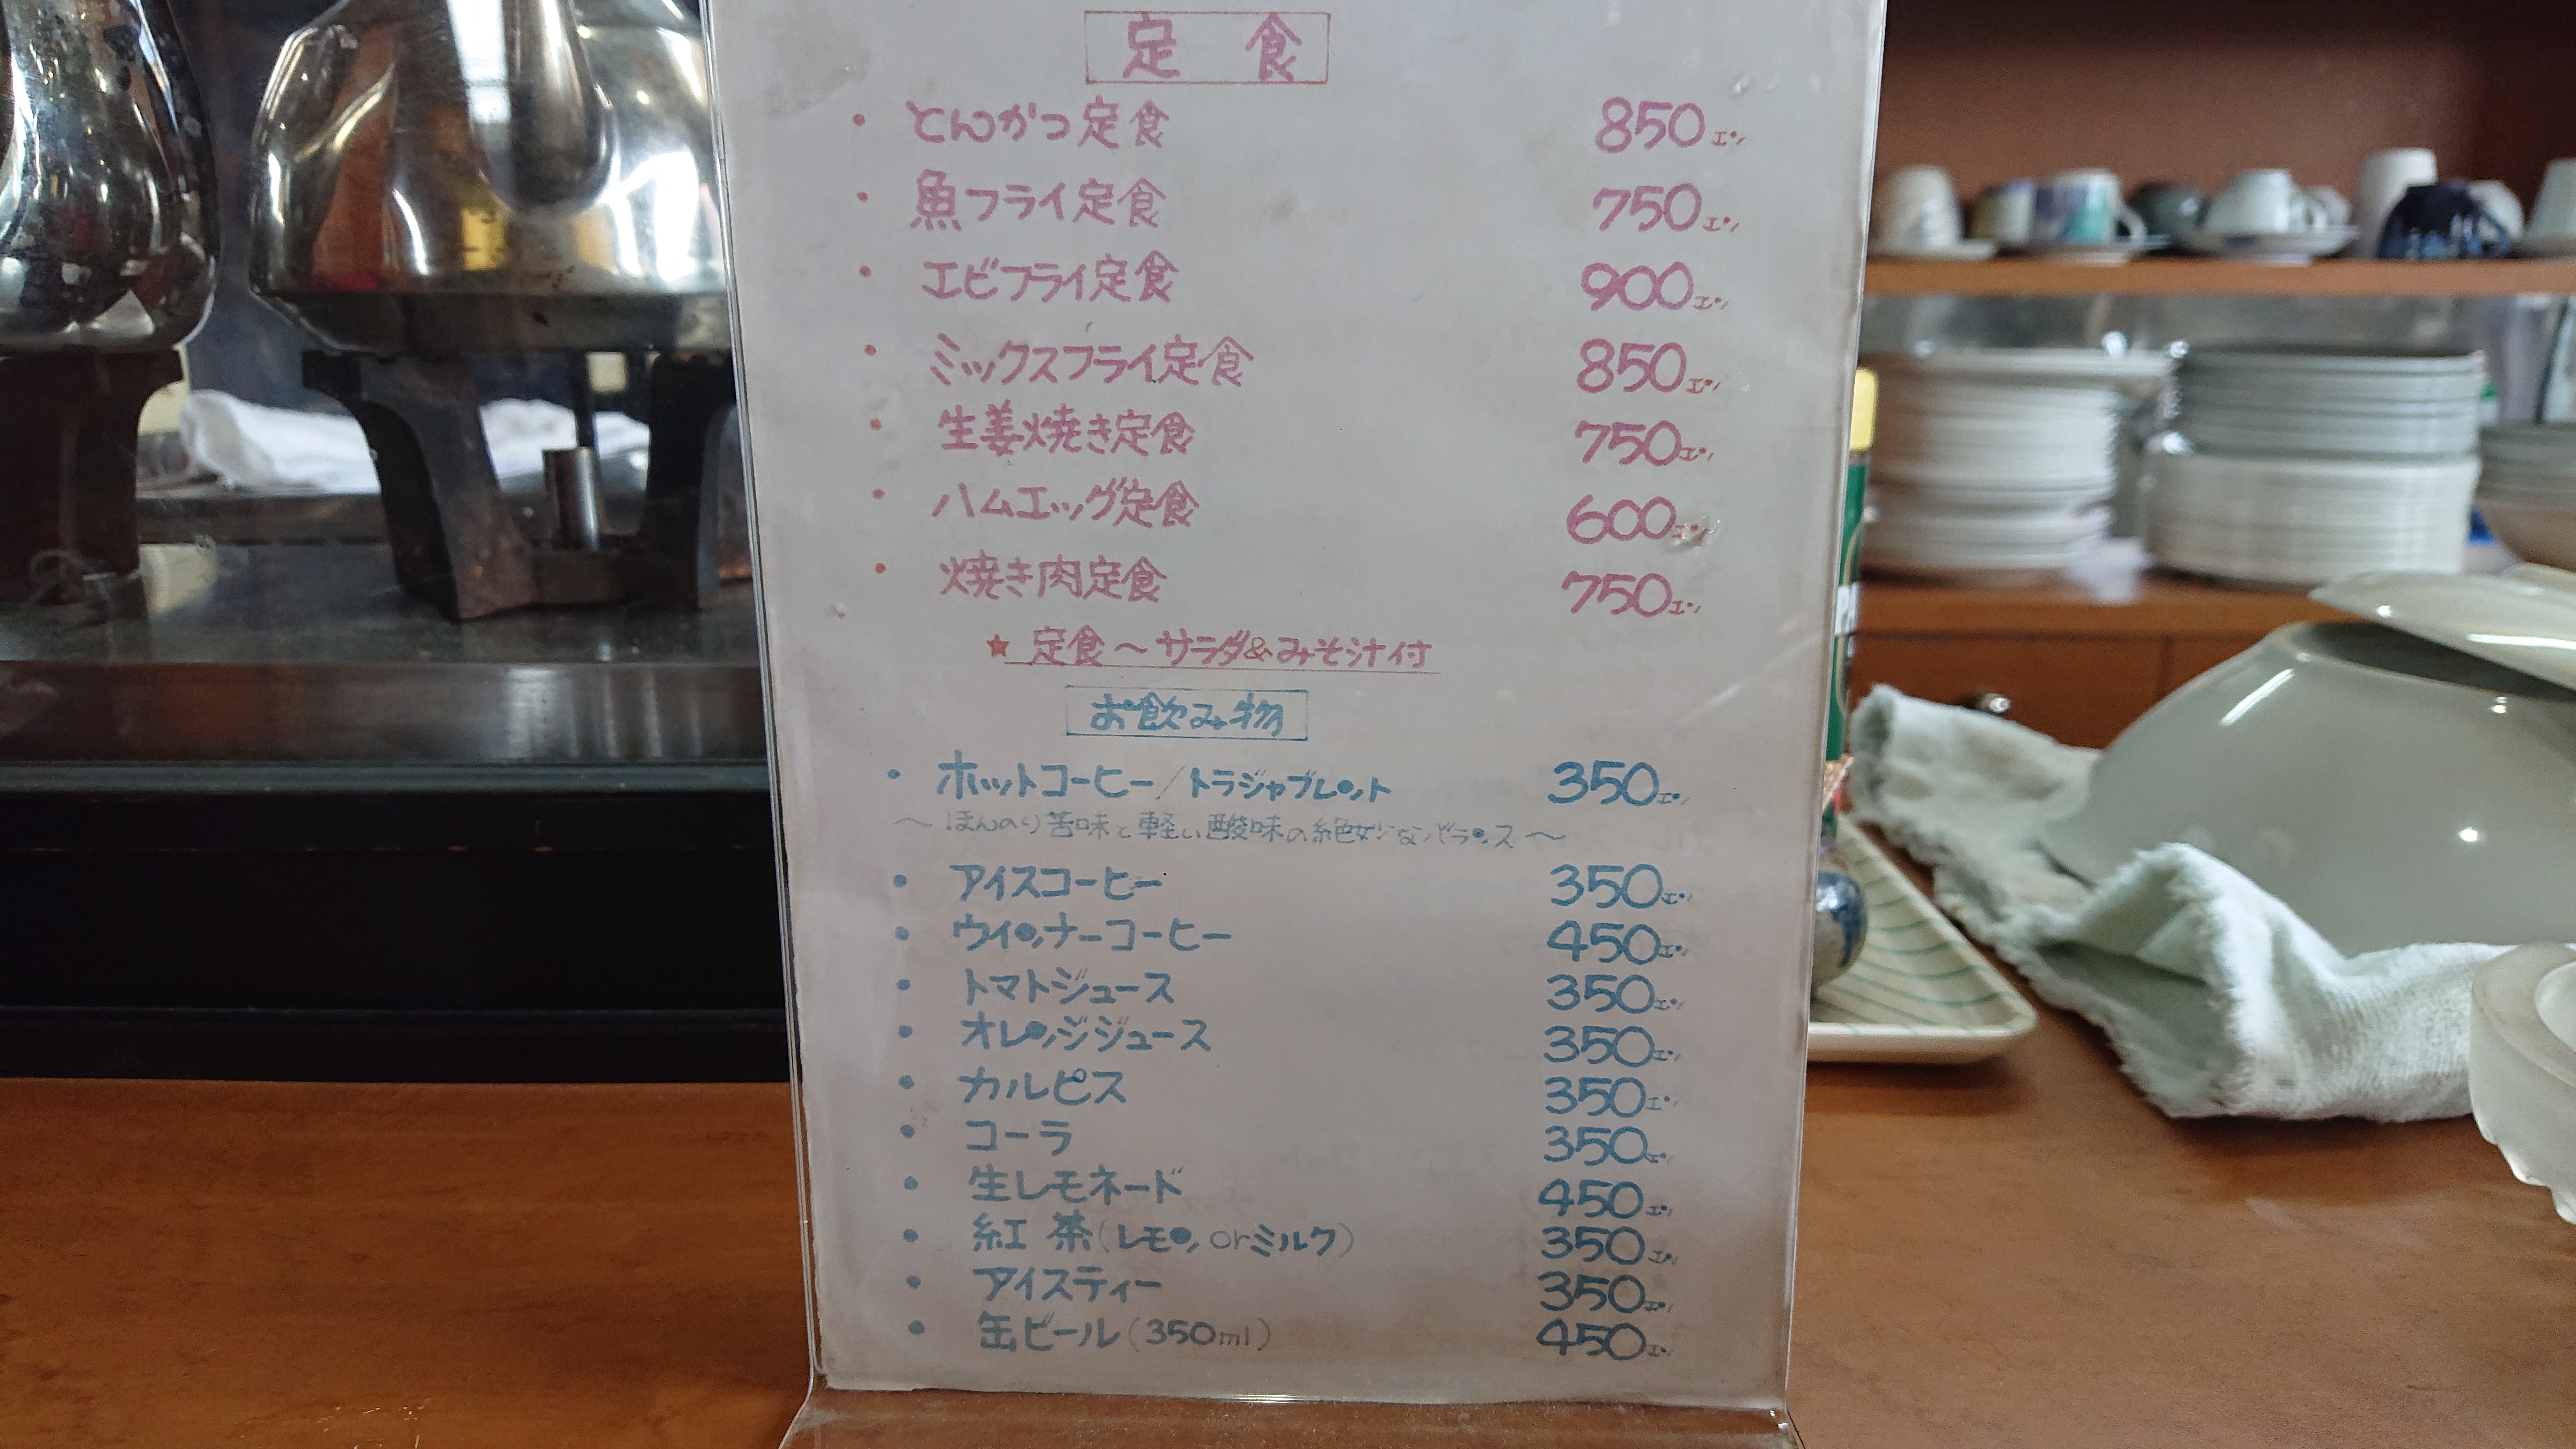 定 食
・ とんかつ定食 850エン
・ 魚フライ定食 750エン
・ エビフライ定食 900エン
・ ミックスフライ定食 850エン
・ 生姜焼き定食 750エン
・ ハムエッグ定食 600エン
・ 焼き肉定食 750エン
★ 定食～サラダ&みそ汁付
お飲み物
・ ホットコーヒー/トラジャブレント 350エン
～ ほんのり苦味と軽い酸味の絶妙なバランス ～
・ アイスコーヒー 350エン
・ ウインナーコーヒー 450エン
・ トマトジュース 350エン
・ オレンジジュース 350エン
・ カルピス 350エン
・ コーラ 350エン
・ 生レモネード 450エン
・ 紅 茶(レモン orミルク) 350エン
・ アイスティー 350エン
・ 缶ビール(350ml) 450エン